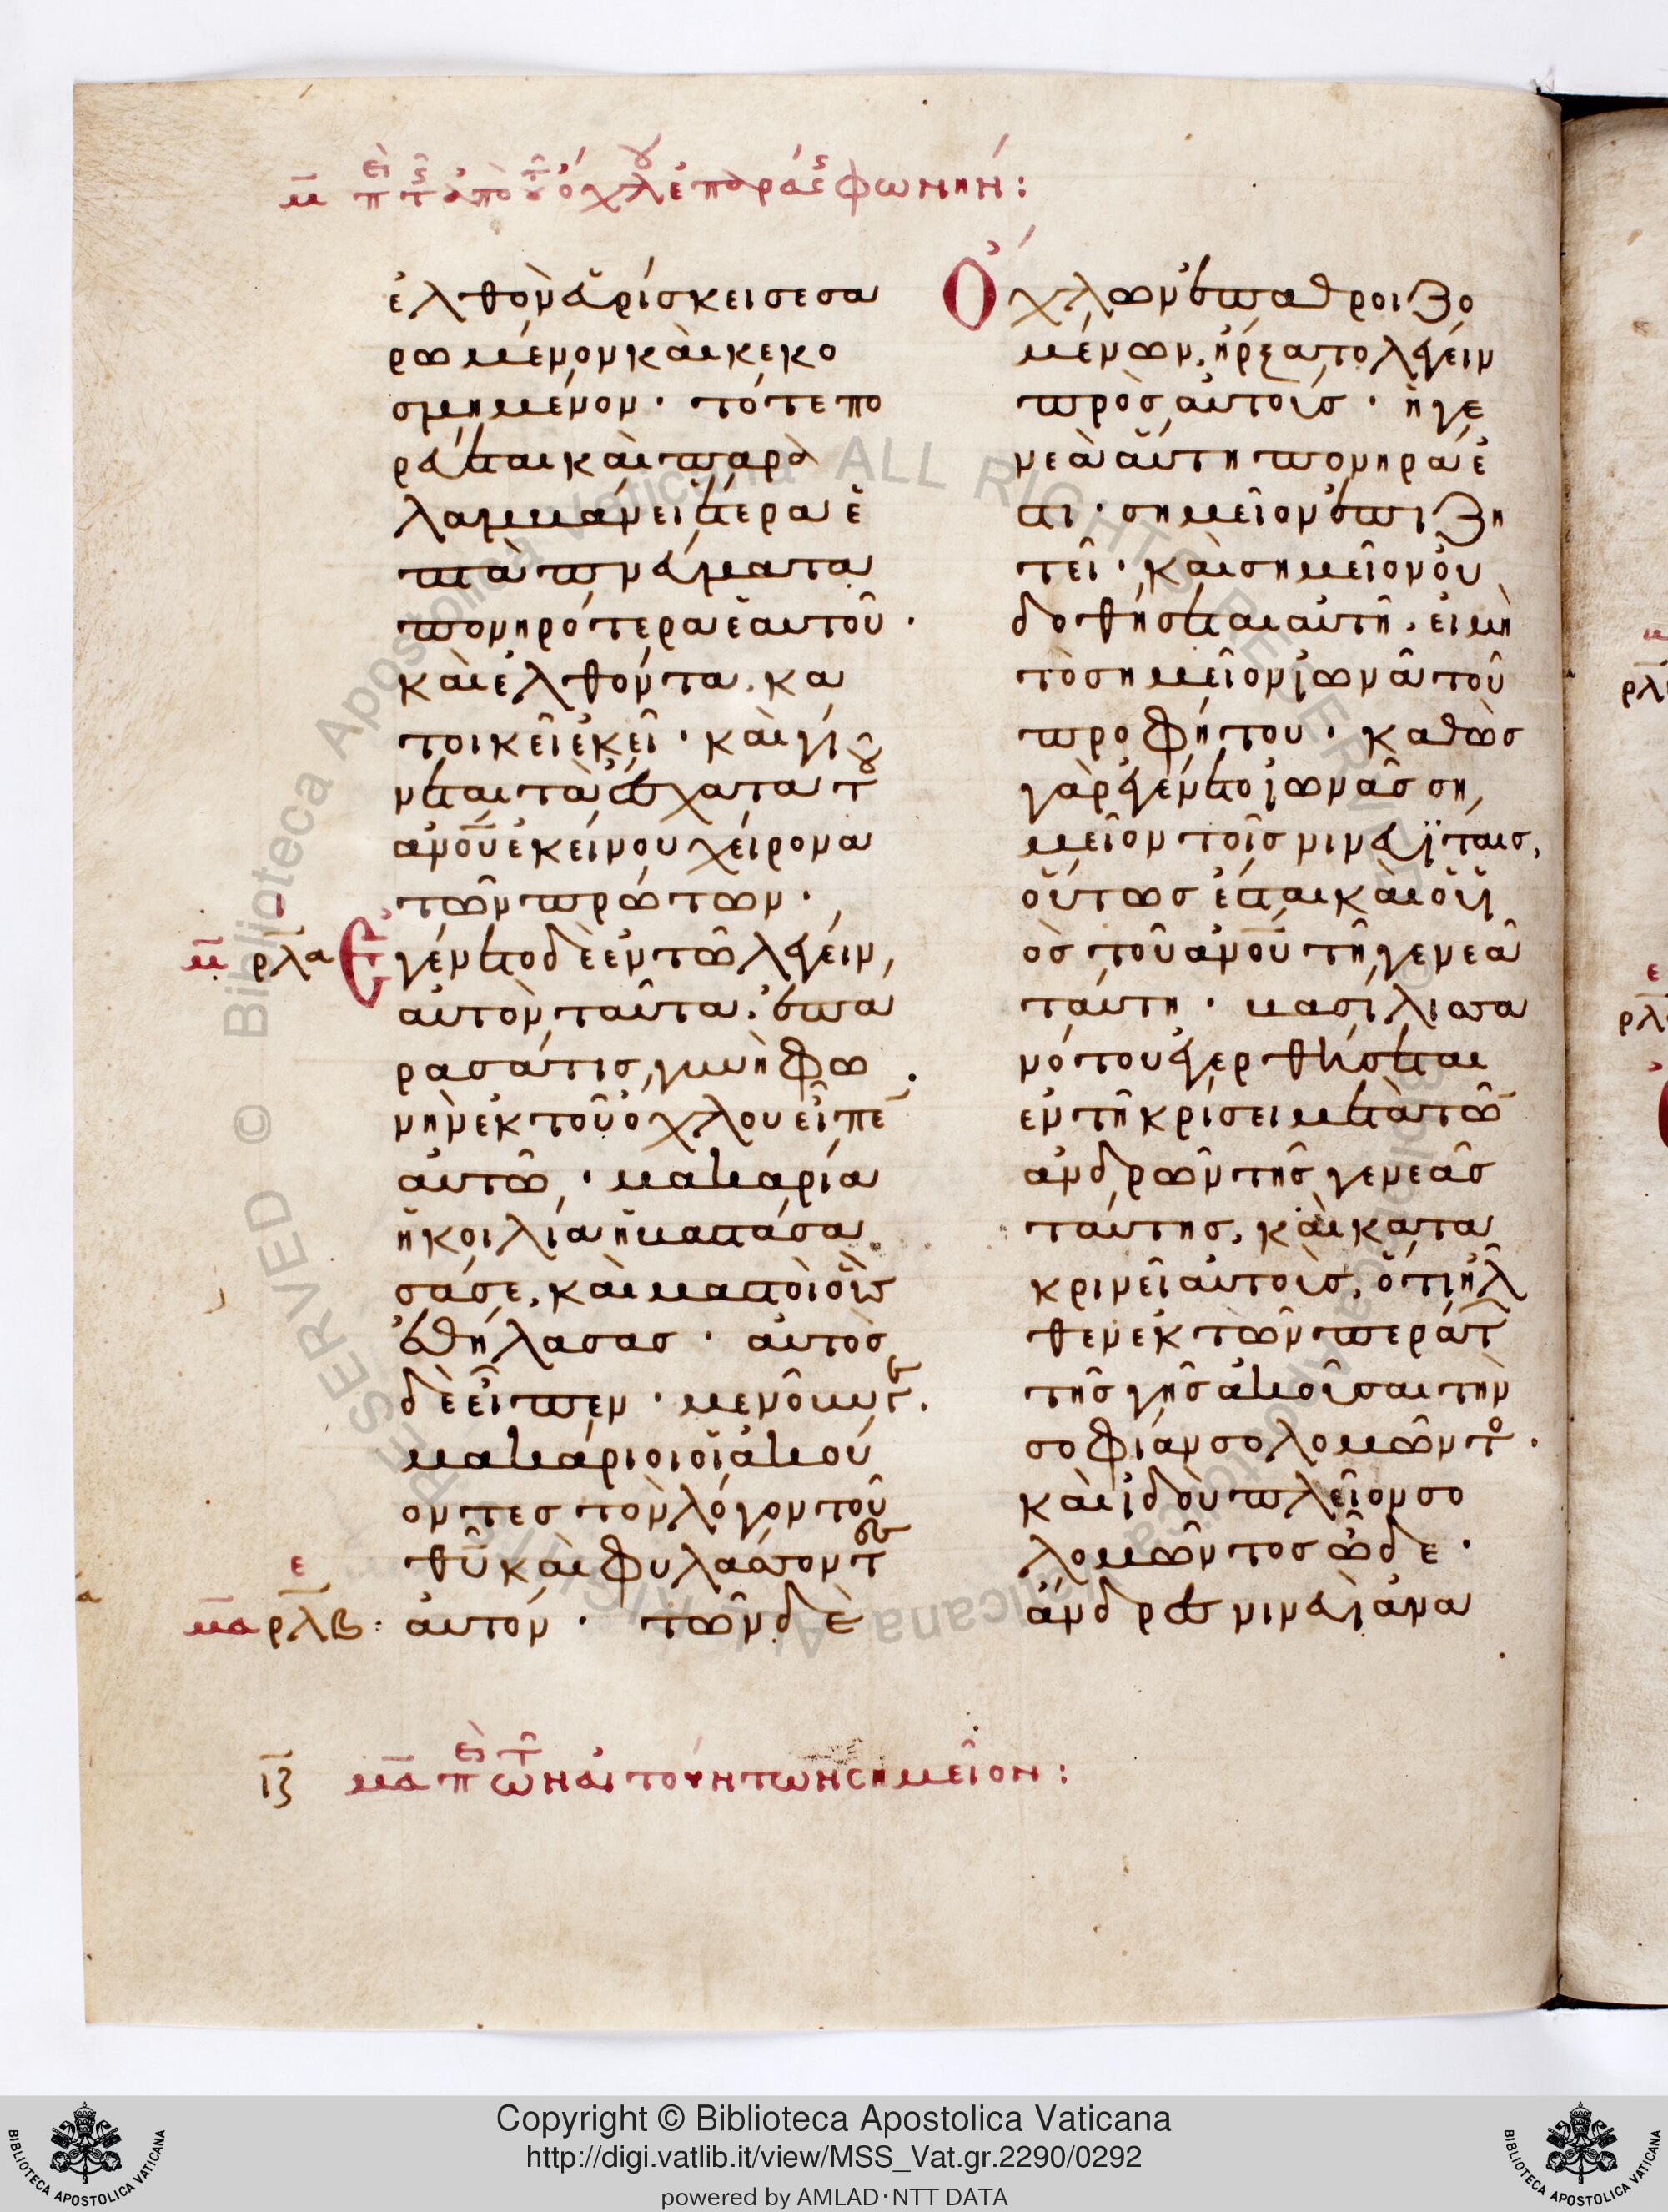 μ̅ π ἐπάρασα ἐκ τοῦ ὄχλου φωνήν:
ἐλθὸν εὑρίσκει σεσα
ρωμένον καὶ κεκο
σμημένον· τότε πο
ρεύεται καὶ παρα
λαμβάνει ἕτερα ἑ
πτὰ πνεύματα
πονηρότερα ἑαυτοῦ·
καὶ ἐλθόντα, κα
τοικεῖ ἐκεῖ· καὶ γί
νεται τὰ ἔσχατα τοῦ
ανου ἐκείνου χείρονα
τῶν πρώτων·
μ̅ ρλα Ἐγένετο δὲ ἐν τῶ λέγειν
αὐτὸν ταῦτα, ἐπά
ρασά τις γυνὴ φω
νὴν ἐκ τοῦ ὄχλου εἶπε
αὐτῶ· μακαρία
ἡ κοιλία ἡ βαστάσα
σά σε, καὶ μαστοὶ οὓς
ἐθήλασας· αὐτὸς
δὲ εἶπεν· μενοῦν γε·
μακάριοι οἱ ἀκού
οντες τὸν λόγον τοῦ
θυ καὶ φυλάσσοντες
μ̅α̅ ρλβ ε αὐτόν· τῶν δὲ
Ὄχλων ἐπαθροιζο
μένων, ἤρξατο λέγειν
πρὸς αὐτούς· ἡ γε
νεὰ αὕτη πονηρά ἐ
στι· σημεῖον ἐπιζη
τεῖ· καὶ σημεῖον οὐ
δοθήσεται αὐτῆ, εἰ μὴ
τὸ σημεῖον ἰωνᾶ τοῦ
προφήτου· καθὼς
γὰρ ἐγένετο ἰωνᾶς ση
μεῖον τοῖς νινευΐταις,
οὕτως ἔσται καὶ ὁ υἱ
ὸς τοῦ ανου τῆ γενεᾶ
ταύτη· βασίλισσα
νότου ἐγερθήσεται
ἐν τῆ κρίσει μετὰ τῶν
ἀνδρῶν τῆς γενεᾶς
ταύτης, καὶ κατα
κρινεῖ αὐτούς, ὅτι ἦλ
θεν ἐκ τῶν περάτων
τῆς γῆς ἀκοῦσαι τὴν
σοφίαν σολομῶντος·
καὶ ἰδοὺ πλεῖον σο
λομῶντος ὧδε·
ἄνδρες νινευῖ ἀνα
ιζ μ̅α̅ περὶ τῶν αἰτούντων σημεῖον:
ALL RIGHTS RESERVED © Biblioteca Apostolica Vaticana
BIBLIOTECA APOSTOLICA VATICANA
Copyright © Biblioteca Apostolica Vaticana
http://digi.vatlib.it/view/MSS_Vat.gr.2290/0292
powered by AMLAD·NTT DATA
BIBLIOTECA APOSTOLICA VATICANA